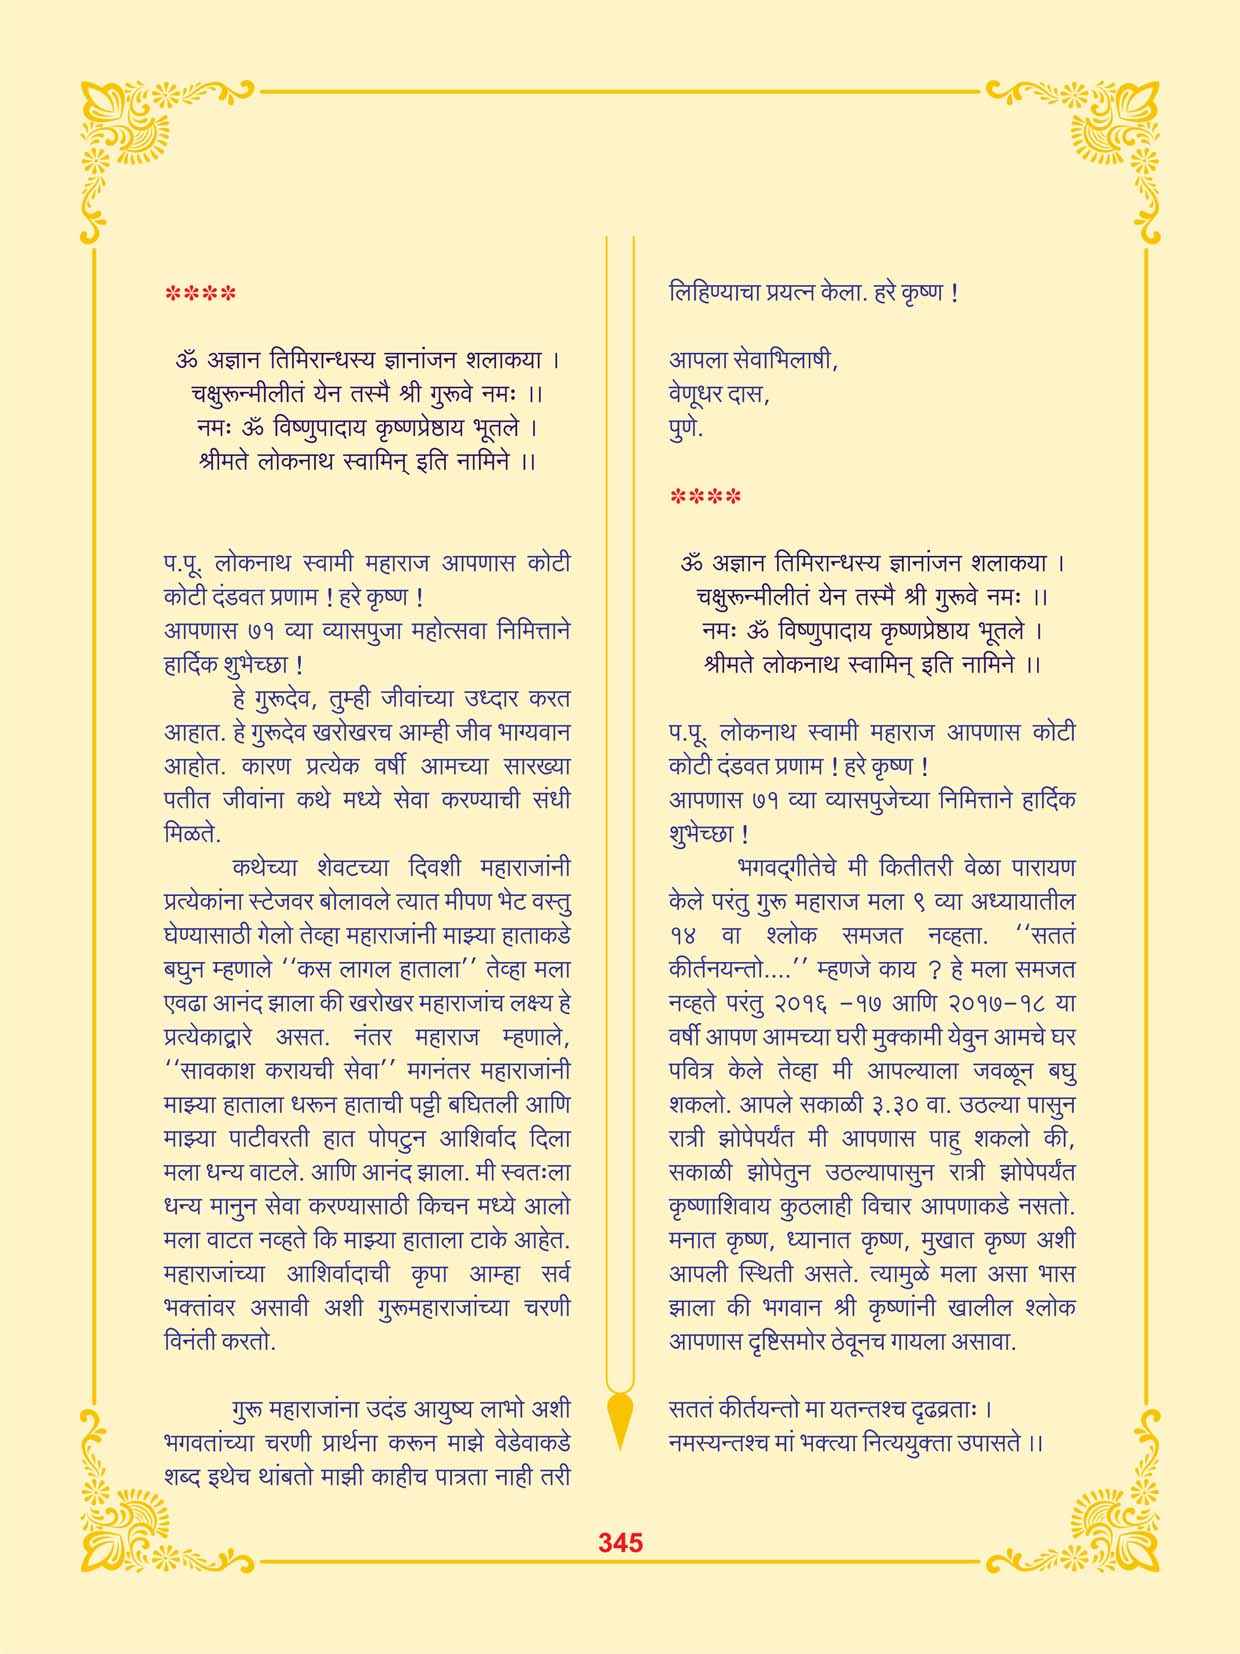 ****
ॐ अज्ञान तिमिरान्धस्य ज्ञानांजन शलाकया ।
चक्षुरून्मीलीतं येन तस्मै श्री गुरूवे नमः ।।
नमः ॐ विष्णुपादाय कृष्णप्रेष्ठाय भूतले ।
श्रीमते लोकनाथ स्वामिन् इति नामिने ।।
प.पू. लोकनाथ स्वामी महाराज आपणास कोटी
कोटी दंडवत प्रणाम ! हरे कृष्ण !
आपणास ७१ व्या व्यासपुजा महोत्सवा निमित्ताने
हार्दिक शुभेच्छा !
हे गुरूदेव, तुम्ही जीवांच्या उध्दार करत
आहात. हे गुरूदेव खरोखरच आम्ही जीव भाग्यवान
आहोत. कारण प्रत्येक वर्षी आमच्या सारख्या
पतीत जीवांना कथे मध्ये सेवा करण्याची संधी
मिळते.
कथेच्या शेवटच्या दिवशी महाराजांनी
प्रत्येकांना स्टेजवर बोलावले त्यात मीपण भेट वस्तु
घेण्यासाठी गेलो तेव्हा महाराजांनी माझ्या हाताकडे
बघुन म्हणाले ‘‘कस लागल हाताला’’ तेव्हा मला
एवढा आनंद झाला की खरोखर महाराजांच लक्ष्य हे
प्रत्येकाद्वारे असत. नंतर महाराज म्हणाले,
‘‘सावकाश करायची सेवा’’ मगनंतर महाराजांनी
माझ्या हाताला धरून हाताची पट्टी बघितली आणि
माझ्या पाटीवरती हात पोपटुन आशिर्वाद दिला
मला धन्य वाटले. आणि आनंद झाला. मी स्वतःला
धन्य मानुन सेवा करण्यासाठी किचन मध्ये आलो
मला वाटत नव्हते कि माझ्या हाताला टाके आहेत.
महाराजांच्या आशिर्वादाची कृपा आम्हा सर्व
भक्तांवर असावी अशी गुरूमहाराजांच्या चरणी
विनंती करतो.
गुरू महाराजांना उदंड आयुष्य लाभो अशी
भगवतांच्या चरणी प्रार्थना करून माझे वेडेवाकडे
शब्द इथेच थांबतो माझी काहीच पात्रता नाही तरी
लिहिण्याचा प्रयत्न केला. हरे कृष्ण !
आपला सेवाभिलाषी,
वेणूधर दास,
पुणे.
****
ॐ अज्ञान तिमिरान्धस्य ज्ञानांजन शलाकया ।
चक्षुरून्मीलीतं येन तस्मै श्री गुरूवे नमः ।।
नमः ॐ विष्णुपादाय कृष्णप्रेष्ठाय भूतले ।
श्रीमते लोकनाथ स्वामिन् इति नामिने ।।
प.पू. लोकनाथ स्वामी महाराज आपणास कोटी
कोटी दंडवत प्रणाम ! हरे कृष्ण !
आपणास ७१ व्या व्यासपुजेच्या निमित्ताने हार्दिक
शुभेच्छा !
भगवद्‌गीतेचे मी कितीतरी वेळा पारायण
केले परंतु गुरू महाराज मला ९ व्या अध्यायातील
१४ वा श्लोक समजत नव्हता. ‘‘सततं
कीर्तनयन्तो....’’ म्हणजे काय ? हे मला समजत
नव्हते परंतु २०१६ –१७ आणि २०१७–१८ या
वर्षी आपण आमच्या घरी मुक्कामी येवुन आमचे घर
पवित्र केले तेव्हा मी आपल्याला जवळून बघु
शकलो. आपले सकाळी ३.३० वा. उठल्या पासुन
रात्री झोपेपर्यंत मी आपणास पाहु शकलो की,
सकाळी झोपेतुन उठल्यापासुन रात्री झोपेपर्यंत
कृष्णाशिवाय कुठलाही विचार आपणाकडे नसतो.
मनात कृष्ण, ध्यानात कृष्ण, मुखात कृष्ण अशी
आपली स्थिती असते. त्यामुळे मला असा भास
झाला की भगवान श्री कृष्णांनी खालील श्लोक
आपणास दृष्टिसमोर ठेवूनच गायला असावा.
सततं कीर्तयन्तो मा यतन्तश्च दृढव्रताः ।
नमस्यन्तश्च मां भक्त्या नित्ययुक्ता उपासते ।।
345